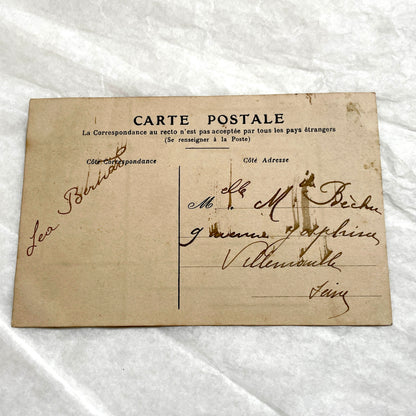 CARTE POSTALE
La Correspondance au recto n'est pas acceptée par tous les pays étrangers
(Se renseigner à la Poste)
Côté Correspondance
Côté Adresse
Lea
Melle M. Béchu
9 avenue Joséphine
Villemomble
Seine